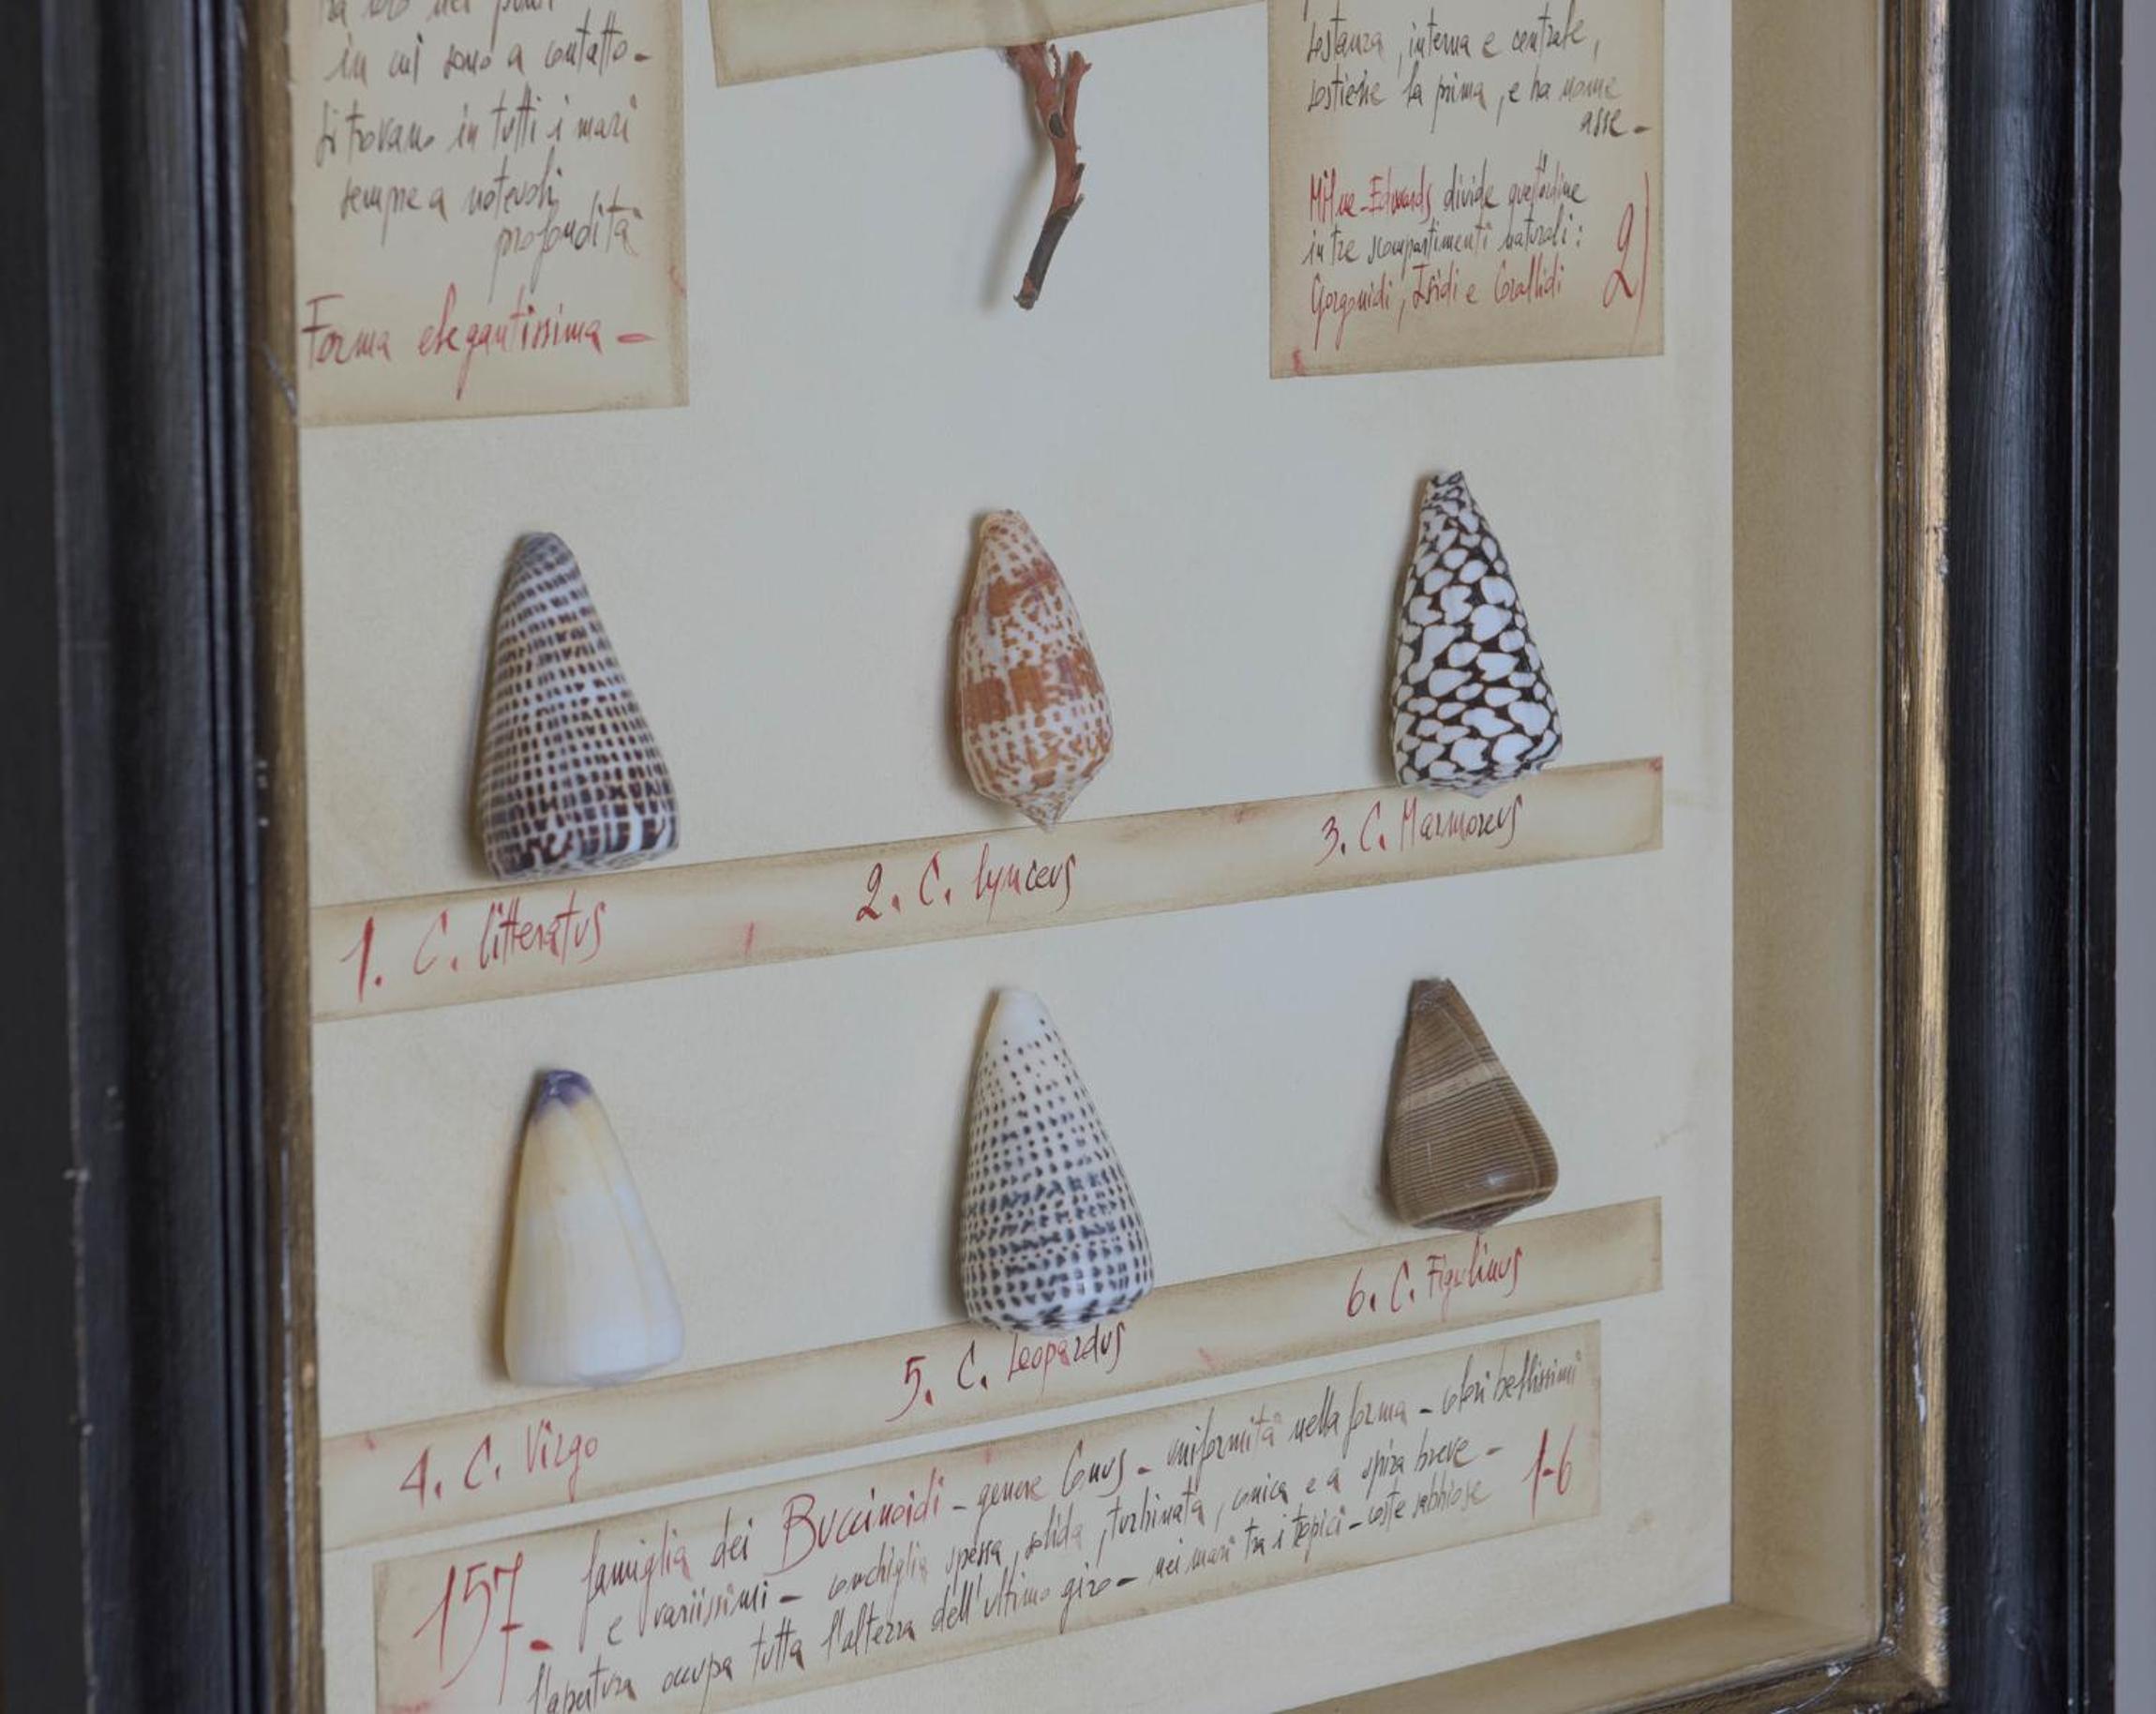 in cui sono a contatto-
Si trovano in tutti i mari
sempre a notevoli
profondità
Forma elegantissima -
sostanza, interna e centrale,
sostiene la prima, e ha nome
asse -
Milne-Edwards divide quest'ordine
in tre scompartimenti naturali:
Gorgonidi, Isidi e Corallidi
2)
1. C. litteratus
2. C. lynceus
3. C. Marmoreus
4. C. Virgo
5. C. Leopardus
6. C. Figulinus
157- famiglia dei Buccinoidi - genere Conus - uniformità nella forma - colori bellissimi
e variissimi - conchiglia spessa, solida, turbinata, conica e a spira breve -
l'apertura occupa tutta l'altezza dell'ultimo giro - nei mari tra i tropici - coste sabbiose
1-6